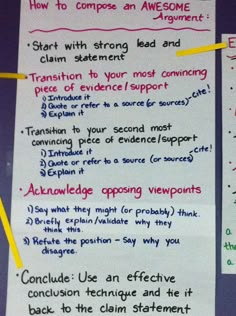 How to compose an AWESOME
Argument:
• Start with strong lead and
claim statement
• Transition to your most convincing
piece of evidence/support
① Introduce it
② Quote or refer to a source (or sources) → cite!
③ Explain it
• Transition to your second most
convincing piece of evidence/support
① Introduce it
② Quote or refer to a source (or sources) → cite!
③ Explain it
• Acknowledge opposing viewpoints
① Say what they might (or probably) think.
② Briefly explain/validate why they
think this.
③ Refute the position – Say why you
disagree.
• Conclude: Use an effective
conclusion technique and tie it
back to the claim statement